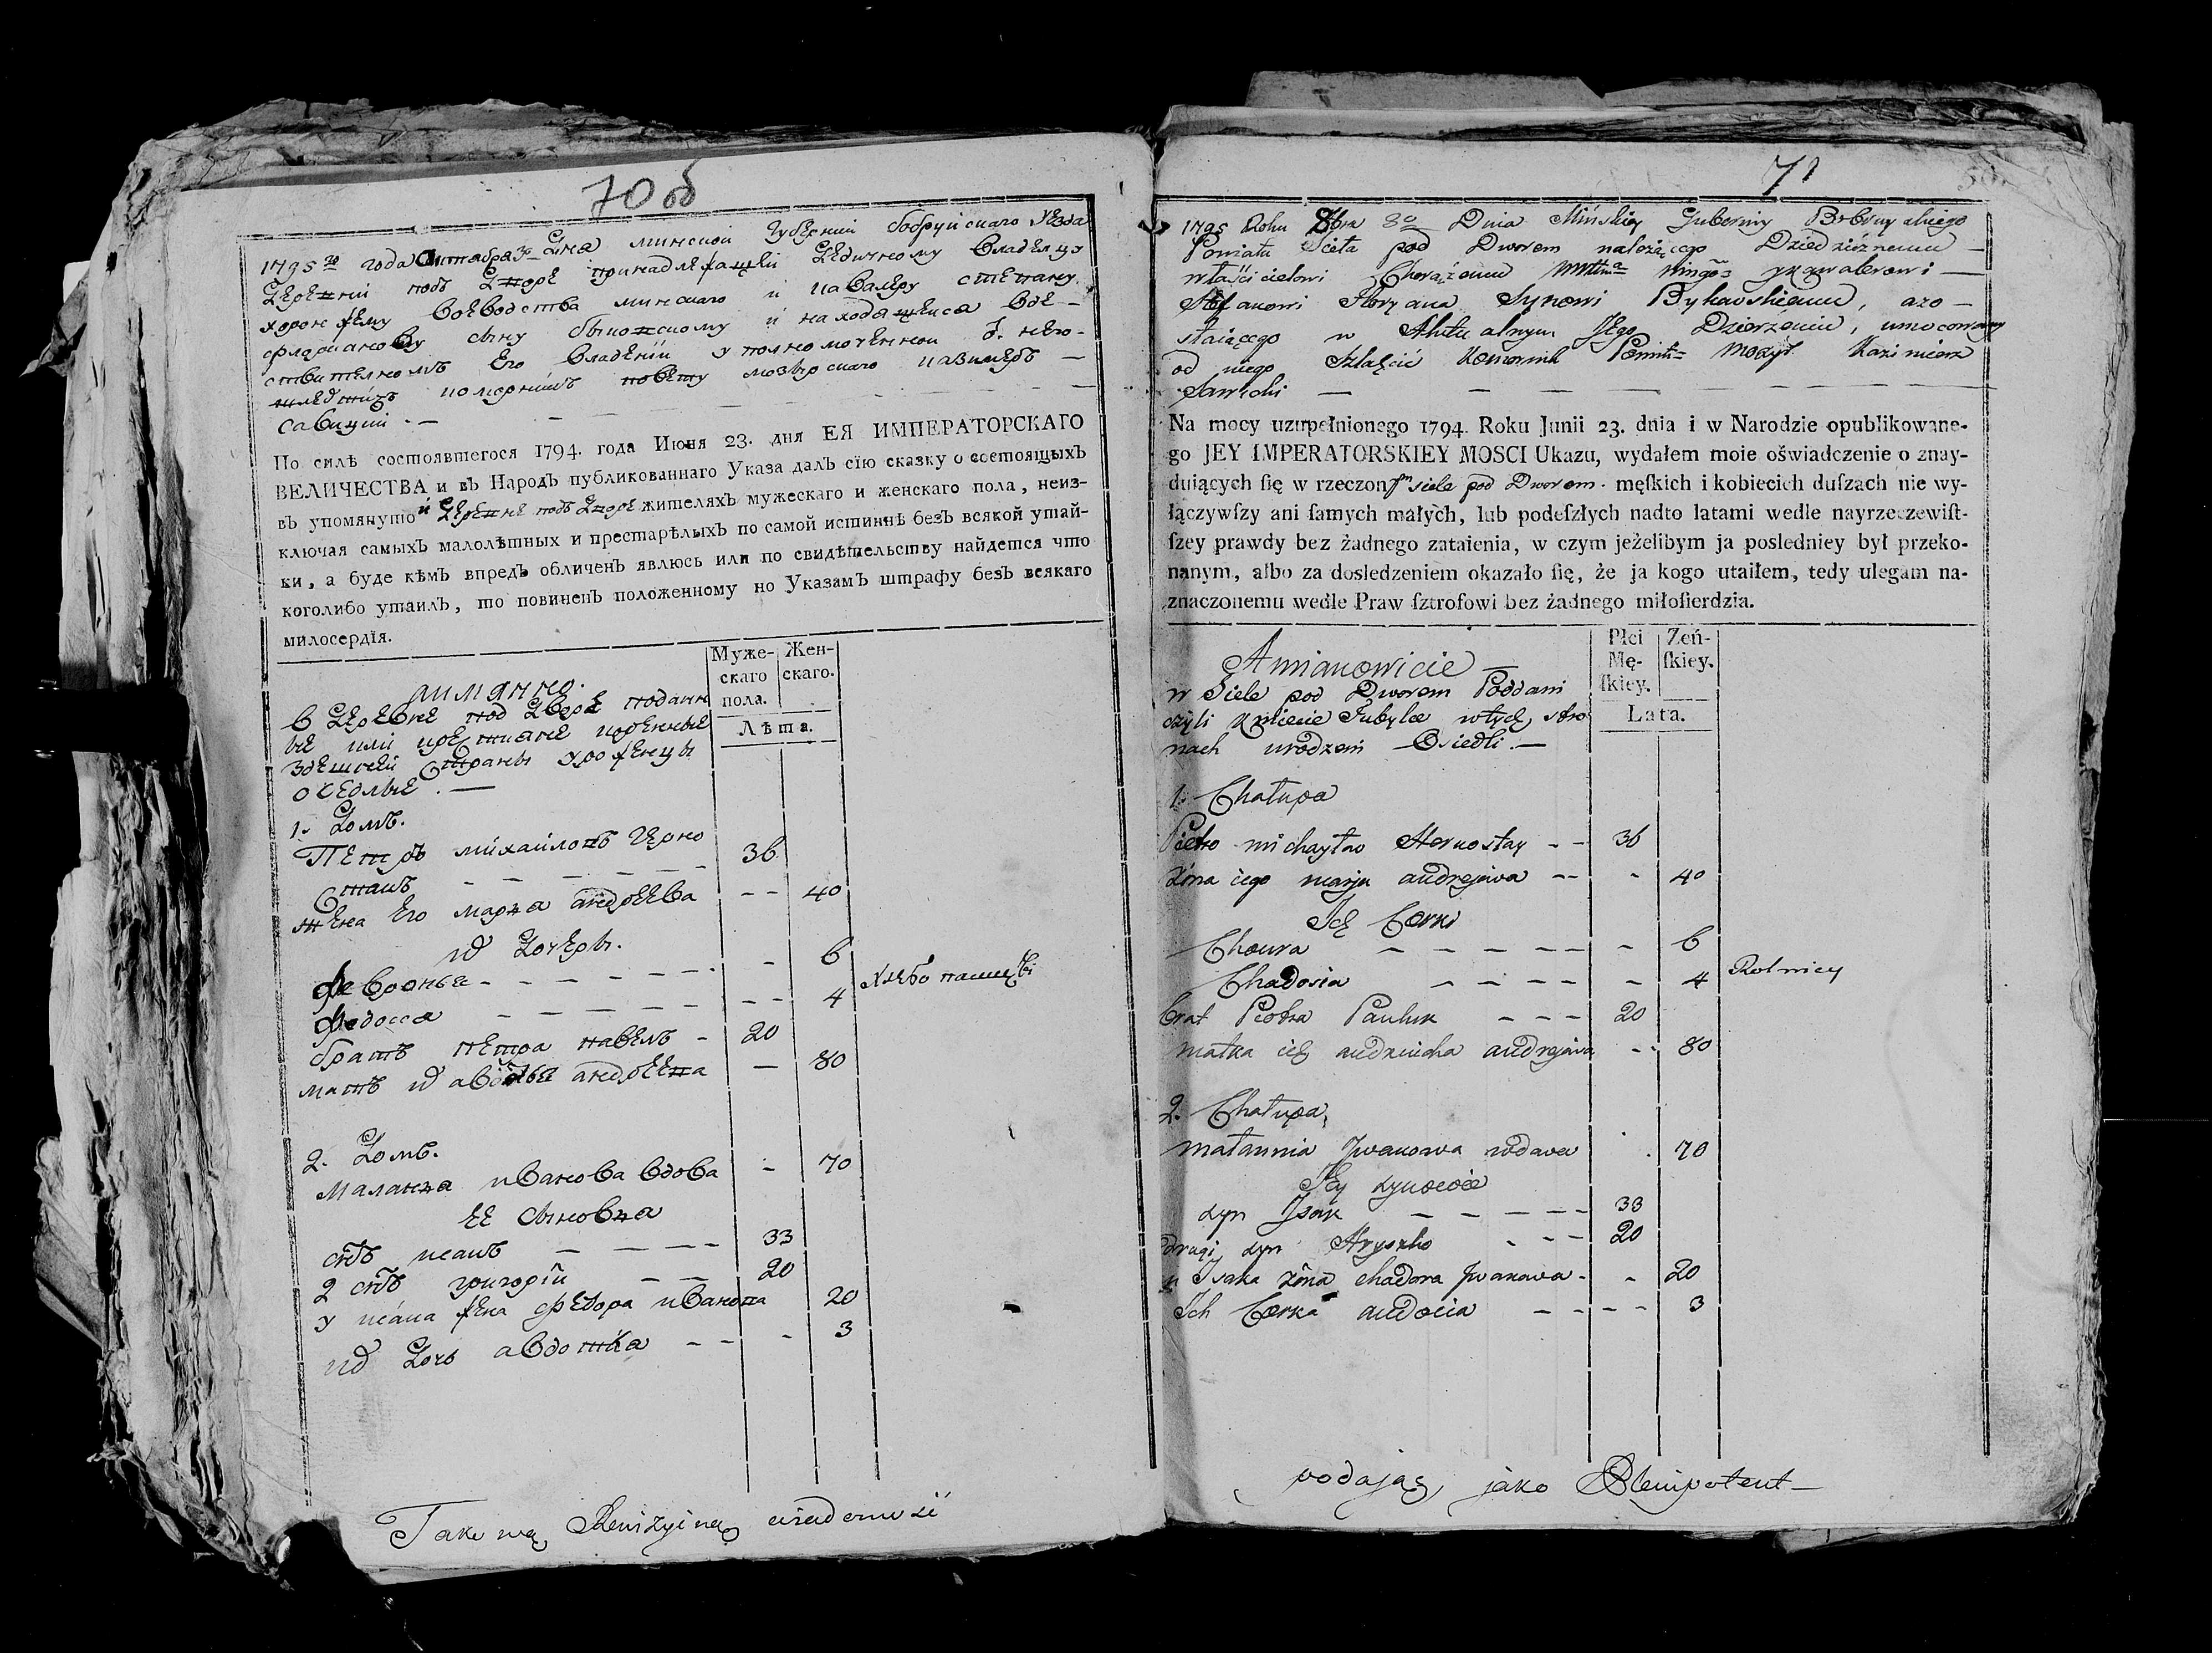 70 об
1795го года октября 30 дня минской губернии бобруйского уезда
деревни подъ дворе принадлежащей дедичному владельцу
хоронжему воеводства минского и кавалеру стефану
флориянову сыну быковскому и находящейся вде-
ствителномъ его владении уполномоченной от него
шлехтичъ коморникъ повету мозырского казимеръ —
савицкий . —
По силѣ состоявшегося 1794. года Июня 23. дня ЕЯ ИМПЕРАТОРСКАГО
ВЕЛИЧЕСТВА и въ Народъ публикованнаго Указа далъ сїю сказку о состоящыхъ
въ упомянутой деревне подъ дворе жителяхъ мужескаго и женскаго пола, неиз-
ключая самыхъ малолѣтныхъ и престарѣлыхъ по самой истиннѣ безъ всякой утай-
ки, а буде кѣмъ впредь обличенъ явлюсь или по свидѣтельству найдется что
коголибо утаилъ, то повиненъ положенному по Указамъ штрафу безъ всякаго
милосердїя.
Муже-
скаго
пола.
Жен-
скаго.
Лѣта.
аимянно.
в деревне под дворе подани
ые или крестяне коренные
здешней страны уроженцы
оседлые . —
1. Домъ.
Петръ михайловъ Горно
стаиъ — — — — — — 36
жена его маря андреева — — 40
их Дочеры.
февронья — — — — — 6
федосся — — — — — 4 хлебопашцы
братъ петра павелъ — 20
мать их авдотья андреева — 80
2. Домъ.
маланя иванова вдова — 70
ее сыновя
снъ исакъ — — — — 33
2 снъ григорiй — — 20
у исака жена федора иванова 20
их дочь авдотия — — — 3
Takową Rewizyiną wiadomość
71
1795 Roku 8bra 30 Dnia Mińskiey Gubernij Bobruyskiego
Powiatu Sioła pod Dworem należącego Dziedzicznemu —
właścicielowi Chorążemu Wttwa mingo y kawalerowi —
Stefanowi Floryana Synowi Bykowskiemu, a zo —
staiącego w Aktualnym Jego Dzierżeniu, umocowany
od niego Szlachcic Komornik Powiatu Mozyr Kazimierz
Sawicki — — — — — — — — — —
Na mocy uzupełnionego 1794. Roku Junii 23. dnia i w Narodzie opublikowane-
go JEY IMPERATORSKIEY MOSCI Ukazu, wydałem moie oświadczenie o znay-
duiących ſię w rzeczonym siele pod Dworem. męſkich i kobiecich duſzach nie wy-
łączywſzy ani ſamych małych, lub podeſzłych nadto latami wedle nayrzeczewiſt-
ſzey prawdy bez żadnego zataienia, w czym jeżelibym ja posledniey był przeko-
nanym, albo za dosledzeniem okazało ſię, że ja kogo utaiłem, tedy ulegam na-
znaczonemu wedle Praw ſztrofowi bez żadnego miłoſierdzia.
Płci
Mę-
ſkiey.
Zeń-
ſkiey.
Lata.
A mianowicie —
w Siele pod Dworem Poddani
czyli Kmiecie Tubylce wtych stro
nach urodzeni Osiedli. —
1. Chałupa
Piotro michayłow Hornostay — — 36
żona iego marja andrejewa — — 40
Ich Corki
Chowra — — — — — 6
Chadosia — — — — — 4 Rolnicy
brat Piotra Pauluk — — — 20
matka ich audziucha andrejewa — — 80
2. Chałupa
małannia Jwanowa wdowa . 70
Jey synowie
syn Jsak — — — — — 33
drugi syn Hryszko — — — 20
u Jsaka żona chadora Jwanowa — 20
Ich Corka audocia — — — — 3
podaję jako Plenipotent —